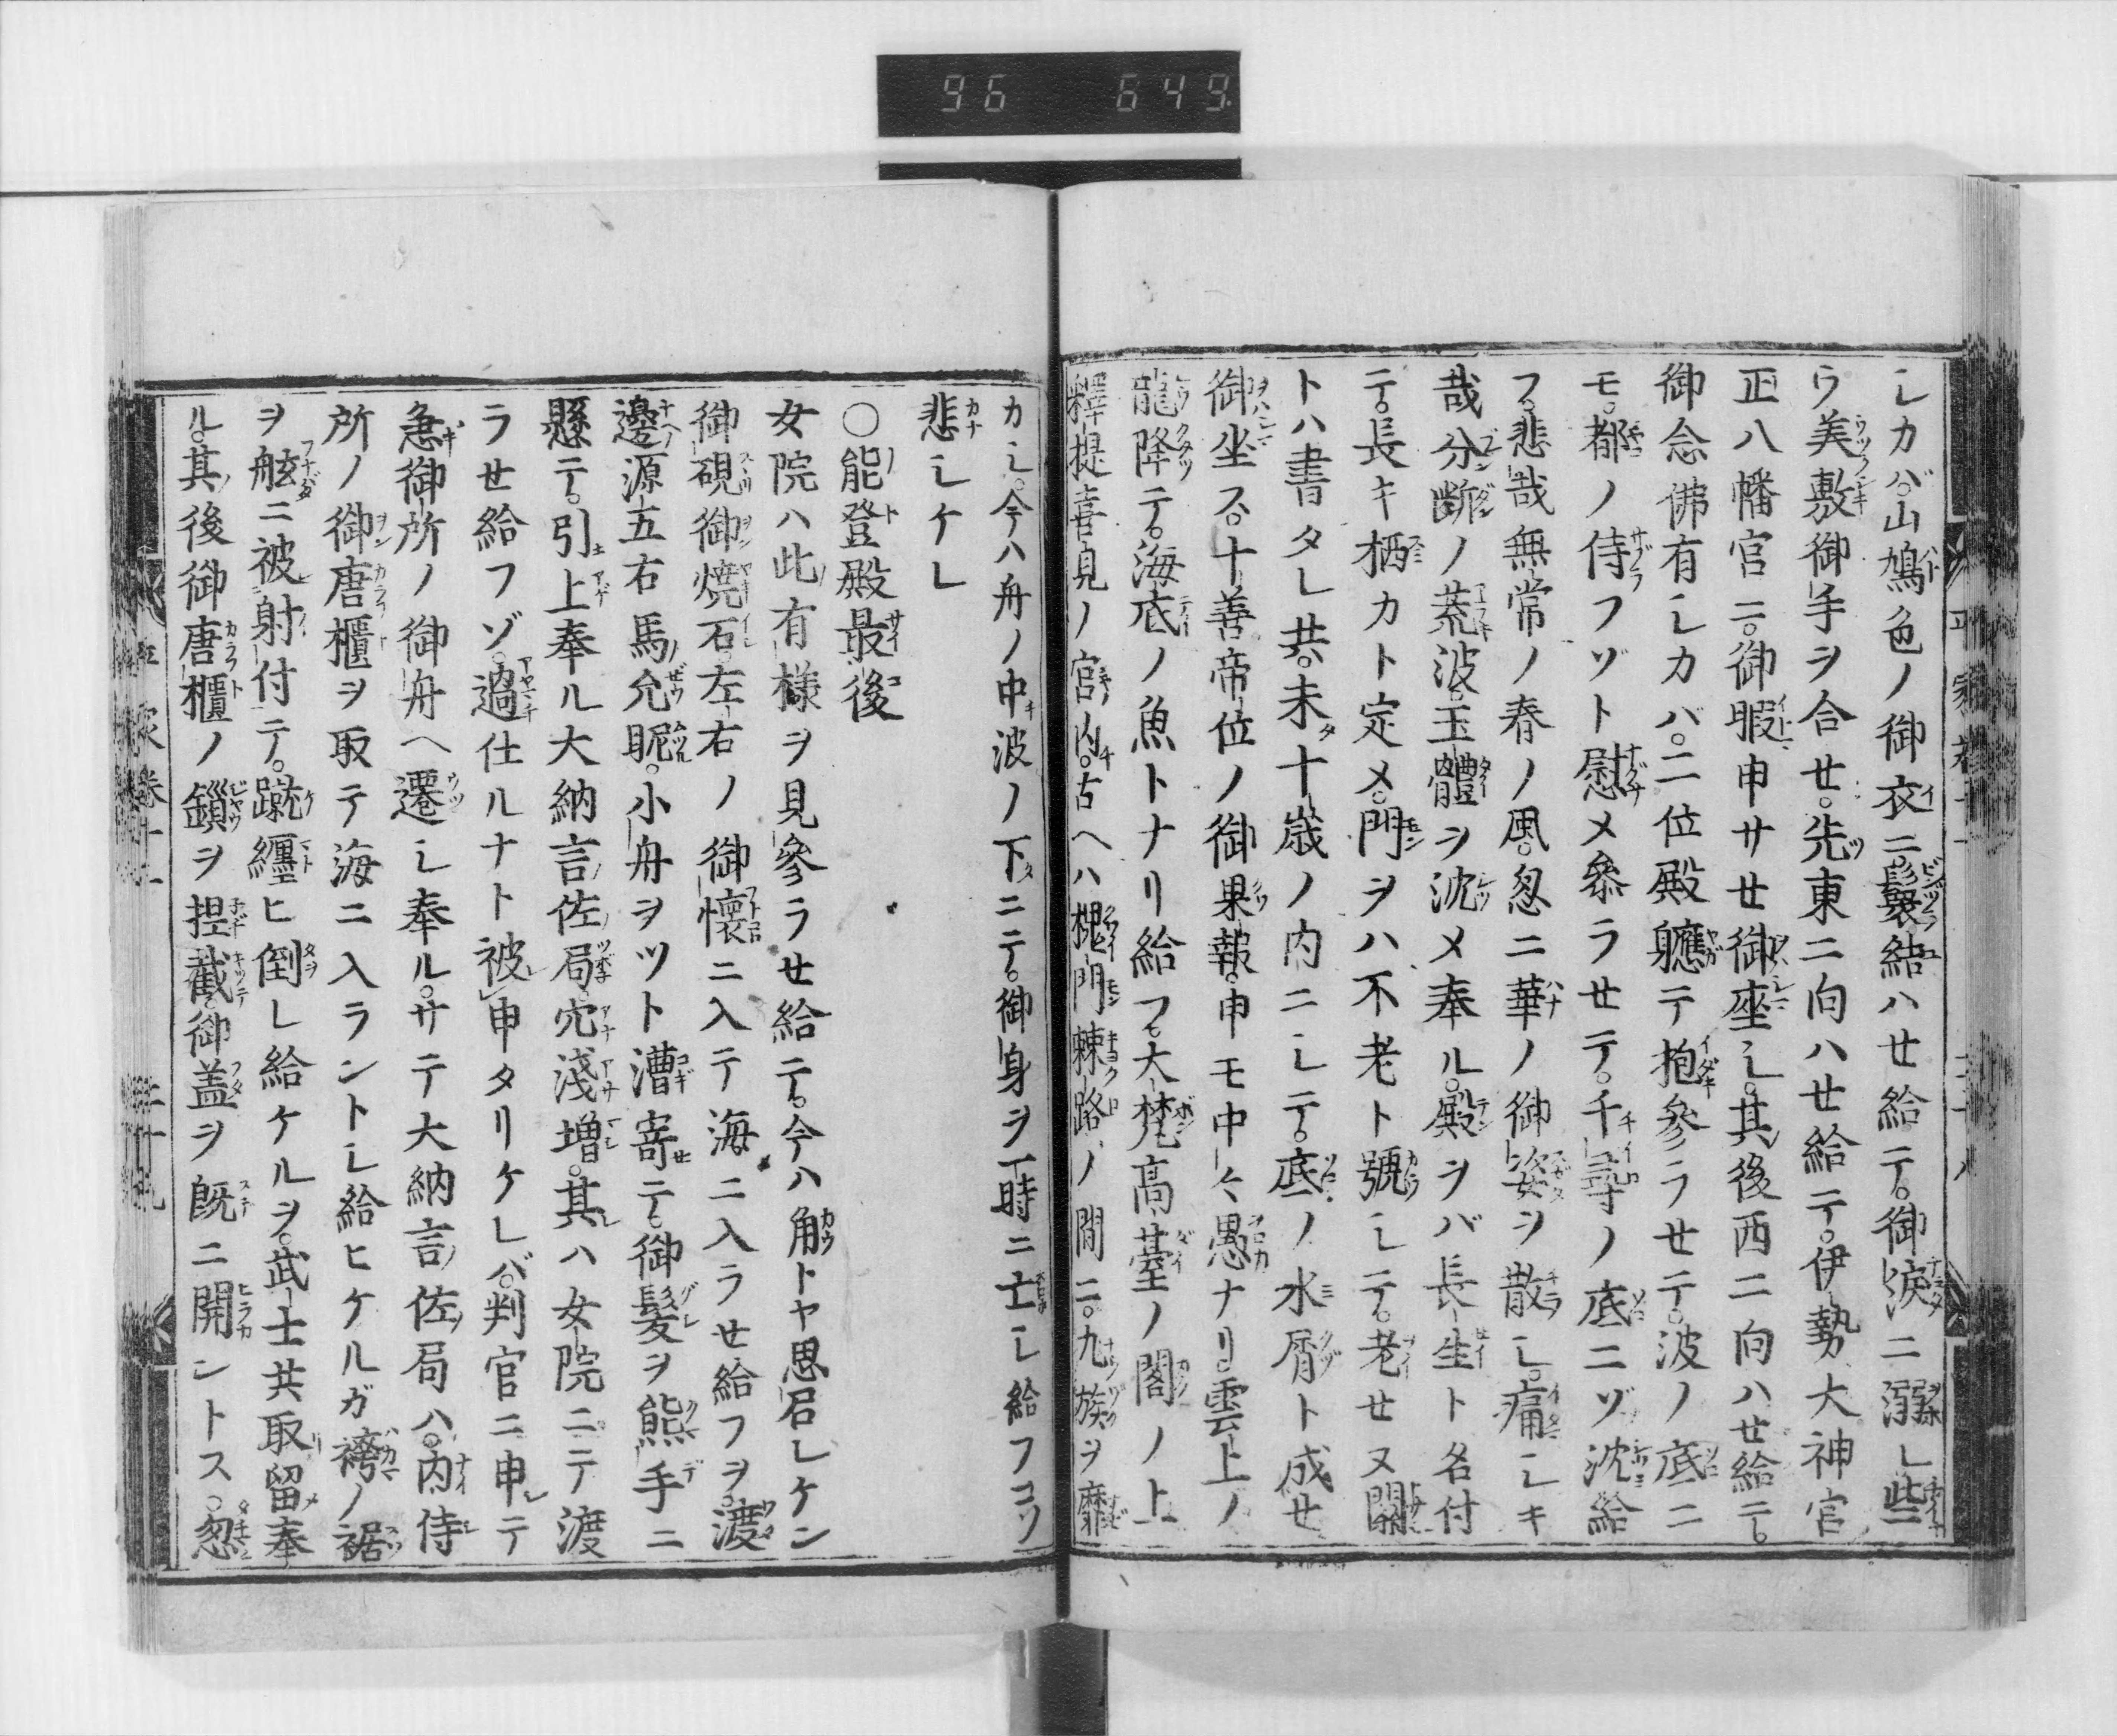 96 649
シカバ。山鳩色ノ御衣ニ。鬟結ハせ給テ。御涙ニ溺レ些
ウ美敷御手ヲ合せ。先東ニ向ハせ給テ。伊勢大神宮
正八幡宮ニ。御暇申サせ御座シ。其後西ニ向ハせ給テ。
御念佛有シカバ。二位殿軈テ抱參ラせテ。波ノ底ニ
モ。都ノ侍フゾト慰メ參ラせテ。千尋ノ底ニゾ沈給
フ。悲哉無常ノ春ノ風。忽ニ華ノ御姿ヲ散シ。痛シキ
哉分斷ノ荒波。玉體ヲ沈メ奉ル。殿ヲバ長生ト名付
テ。長キ栖カト定メ。門ヲハ不老ト號シテ。老せヌ關
トハ書タレ共。未十歳ノ内ニシテ。底ノ水屑ト成せ
御坐ス。十善帝位ノ御果報。申モ中々愚ナリ。雲上ノ
龍降テ。海底ノ魚トナリ給フ。大梵高臺ノ閣ノ上
釋提喜見ノ宮ノ内。古ヘハ槐門棘路ノ間ニ。九族ヲ靡
カシ。今ハ舟ノ中波ノ下ニテ。御身ヲ一時ニ亡シ給フコソ
悲シケレ
〇能登殿最後
女院ハ此有樣ヲ見參ラせ給テ。今ハ角トヤ思召レケン
御硯御燒石。左右ノ御懷ニ入テ海ニ入ラせ給フヲ。渡
邊源五右馬允眤。小舟ヲツト漕寄テ。御髮ヲ熊手ニ
懸テ。引上奉ル大納言佐局。穴淺増。其ハ女院ニテ渡
ラせ給フゾ。過仕ルナト被申タリケレバ。判官ニ申テ
急御所ノ御舟ヘ遷シ奉ル。サテ大納言佐局ハ。内侍
所ノ御唐櫃ヲ取テ海ニ入ラントシ給ヒケルガ袴ノ裾
ヲ舷ニ被射付テ。蹴纒ヒ倒レ給ケルヲ。武士共取留奉
ル。其後御唐櫃ノ鎖ヲ捏截。御盖ヲ既ニ開ントス。忽